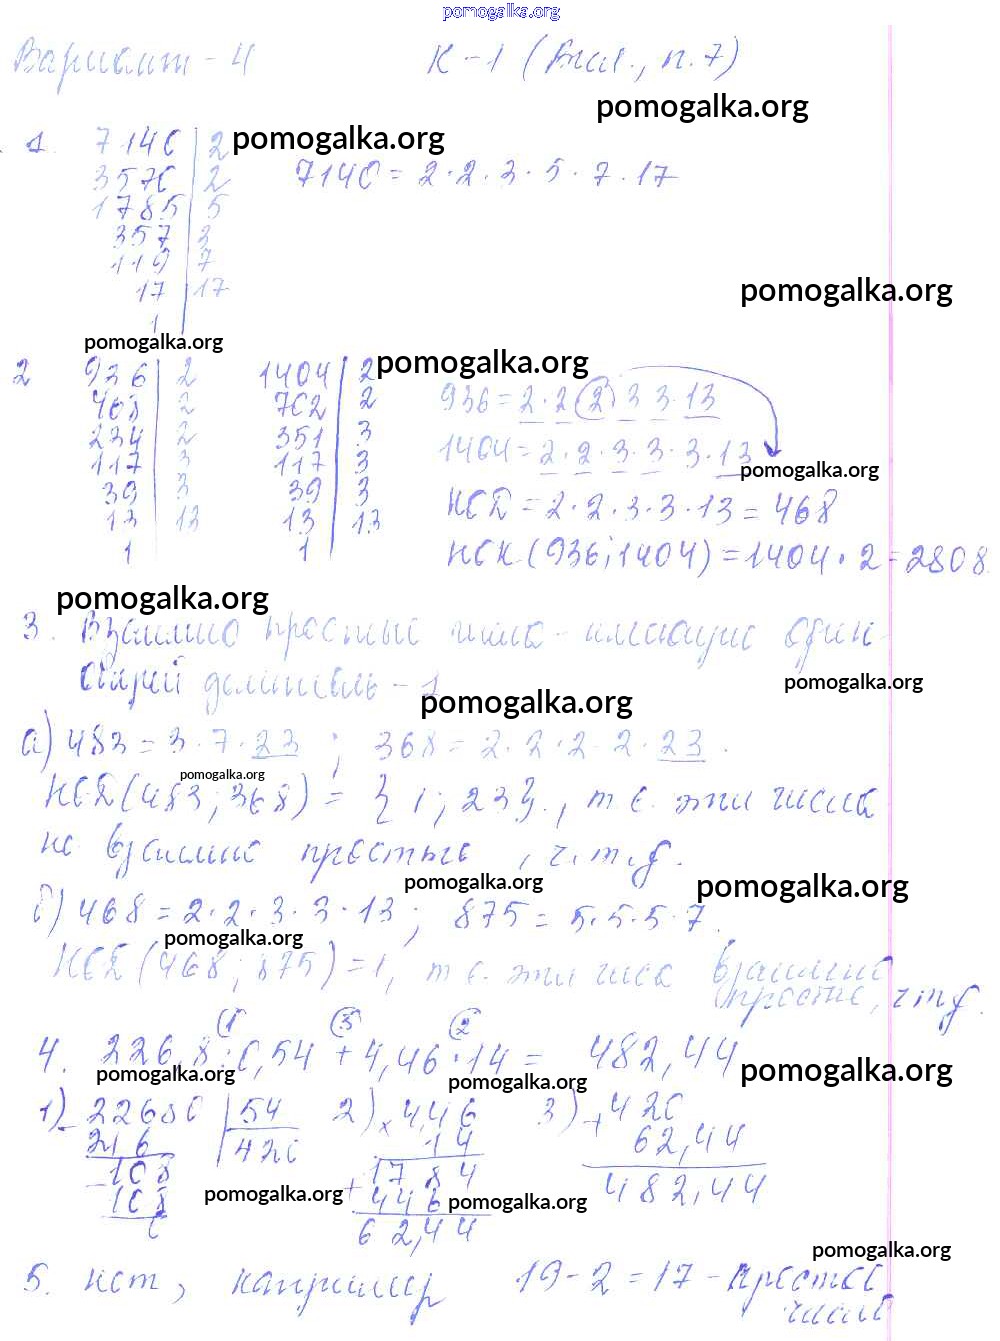 pomogalka.org
Вариант - 4 К -1 (Вил., п. 7)
pomogalka.org
1. 7140 | 2 pomogalka.org
3570 | 2 7140 = 2 · 2 · 3 · 5 · 7 · 17
1785 | 5
357 | 3
119 | 7
17 | 17
pomogalka.org
1
pomogalka.org
2 936 | 2 1404 | 2 pomogalka.org
468 | 2 702 | 2 936 = 2 · 2 · 2 · 3 · 3 · 13
234 | 2 351 | 3
117 | 3 117 | 3 1404 = 2 · 2 · 3 · 3 · 3 · 13
pomogalka.org
39 | 3 39 | 3 НОД = 2 · 2 · 3 · 3 · 13 = 468
13 | 13 13 | 13
1 1 НОК (936; 1404) = 1404 · 2 = 2808
pomogalka.org
3. Взаимно простые числа - имеющие один
общий делитель - 1
pomogalka.org
pomogalka.org
а) 483 = 3 · 7 · 23 ; 368 = 2 · 2 · 2 · 2 · 23 .
pomogalka.org
НОД (483; 368) = { 1; 23}., т. е. эти числа
не взаимно простые , ч. т. д.
pomogalka.org
pomogalka.org
б) 468 = 2 · 2 · 3 · 3 · 13 ; 875 = 5 · 5 · 5 · 7 .
pomogalka.org
НОД (468; 875) = 1, т. е. эти числа взаимно
простые, ч т д.
1 3 2
4. 226,8 : 0,54 + 4,46 · 14 = 482,44
pomogalka.org
pomogalka.org
pomogalka.org
1) - 22680 | 54 2) × 4,46 3) + 420
216 | 420 14 62,44
- 108 17 84 482,44
108 + 446
0 62,44
pomogalka.org
pomogalka.org
pomogalka.org
5. нет, например 19 - 2 = 17 - простое
число